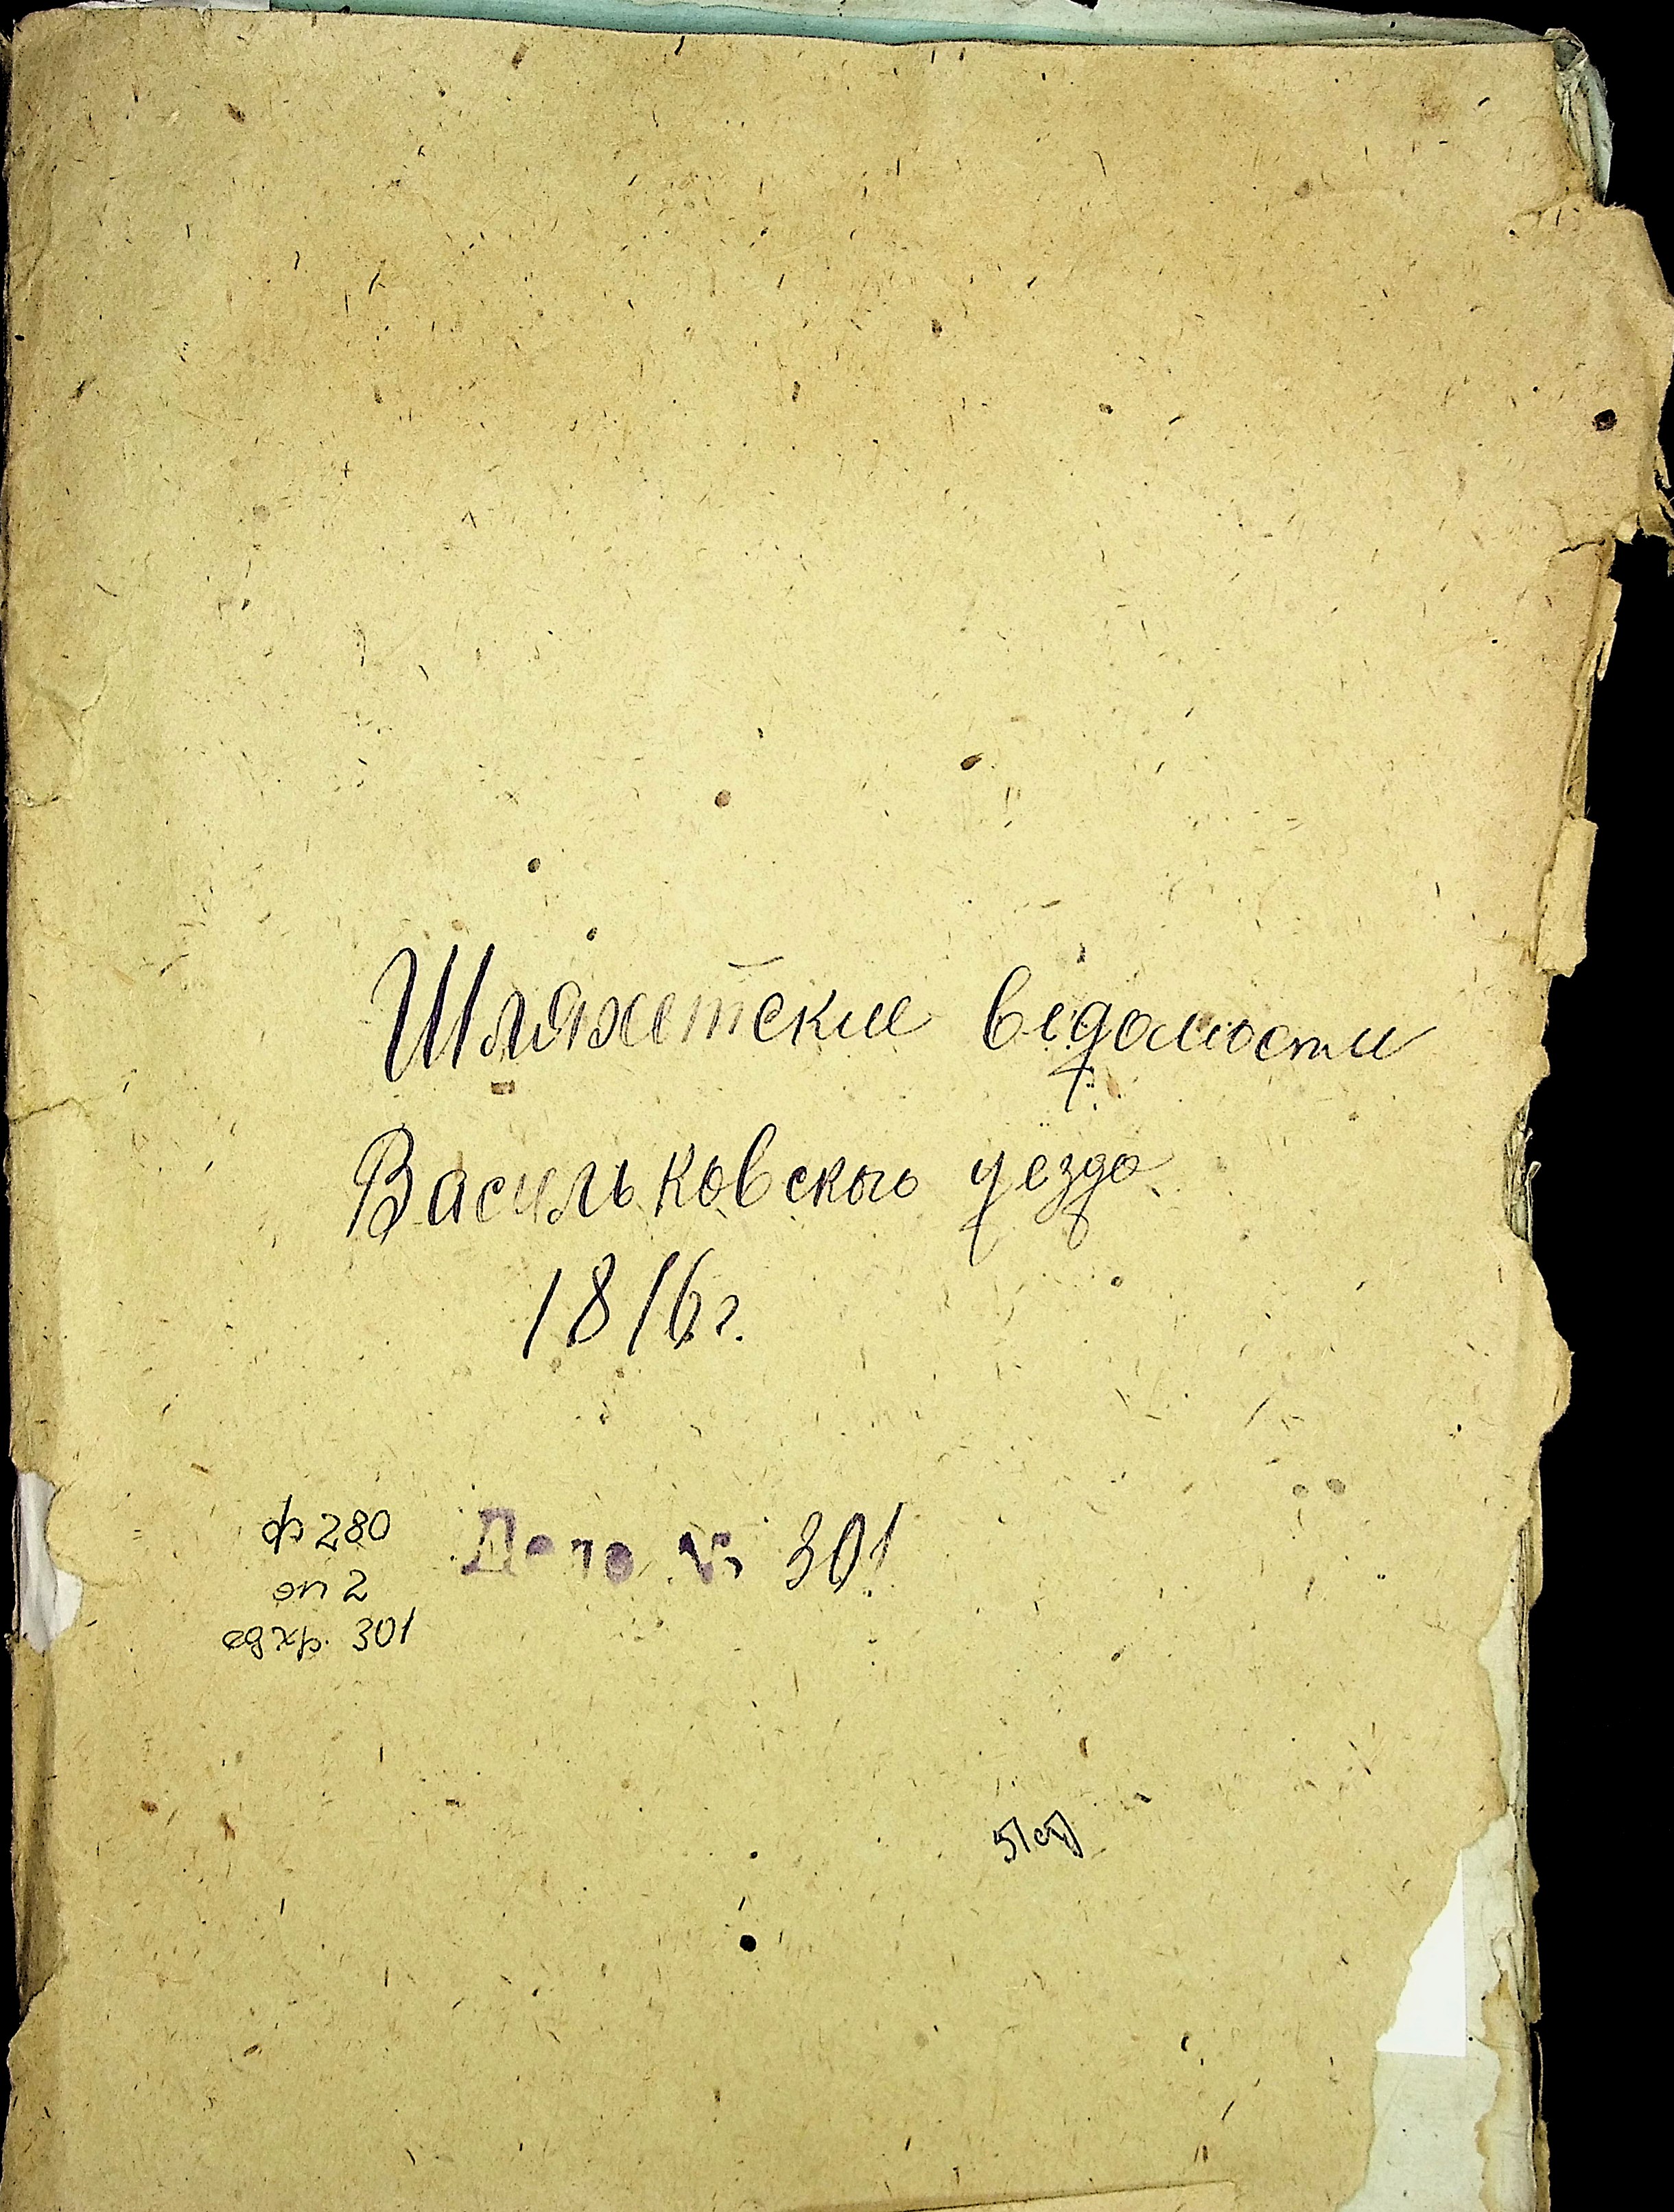 Шляхетские ведомости
Васильковского уезда
1816 г.
ф 280
оп 2
ед хр. 301
Дело № 301